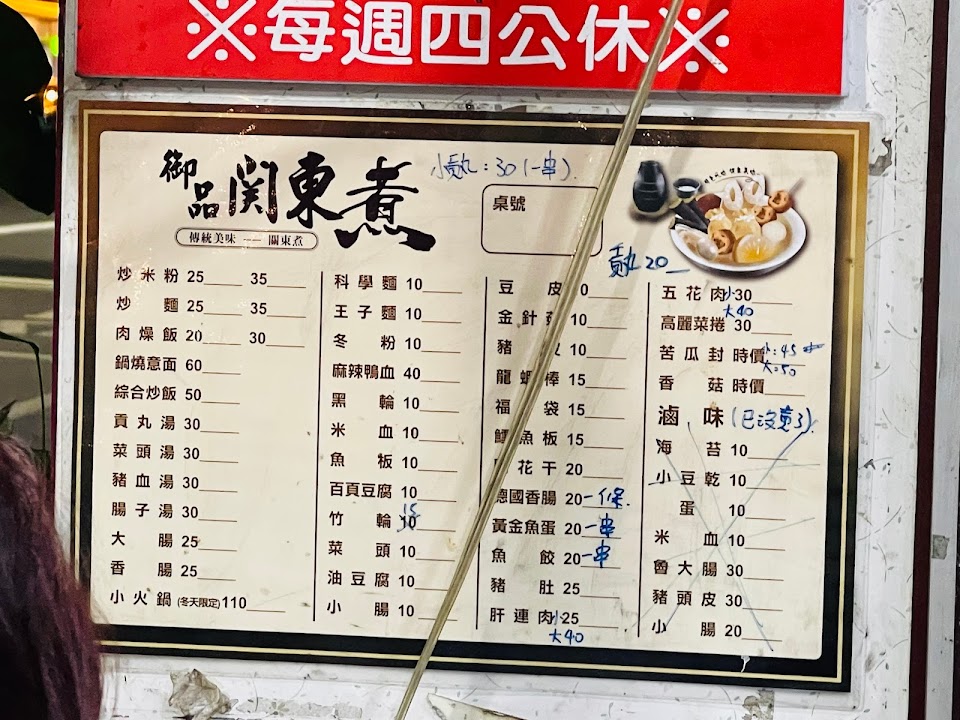 ※每週四公休※
御品関東煮
傳統美味 — 關東煮
小貢丸:30(一串).
桌號
貢丸20
炒米粉 25 35
炒麵 25 35
肉燥飯 20 30
鍋燒意面 60
綜合炒飯 50
貢丸湯 30
菜頭湯 30
豬血湯 30
腸子湯 30
大腸 25
香腸 25
小火鍋(冬天限定)110
科學麵 10
王子麵 10
冬粉 10
麻辣鴨血 40
黑輪 10
米血 10
魚板 10
百頁豆腐 10
竹輪 10 15
菜頭 10
油豆腐 10
小腸 10
豆皮 0
金針菇 10
豬 10
龍蝦棒 15
福袋 15
鱈魚板 15
花干 20
德國香腸 20一條.
黃金魚蛋 20一串
魚餃 20一串
豬肚 25
肝連肉 小25
大40
五花肉 小30
大40
高麗菜捲 30
苦瓜封 時價 小:45
大:50
香菇 時價
滷味 (已沒賣了).
海苔 10
小豆乾 10
蛋 10
米血 10
魯大腸 30
豬頭皮 30
小腸 20